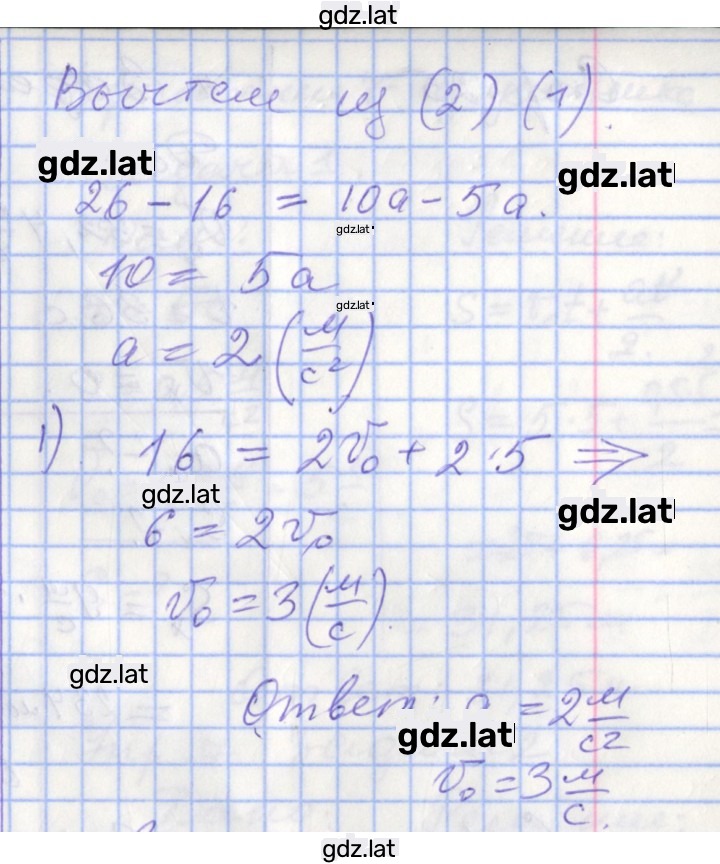 gdz.lat
Вычтем из (2) (1).
gdz.lat
gdz.lat
26 - 16 = 10a - 5a.
gdz.lat
10 = 5a
gdz.lat
a = 2 (м/с²)
1) 16 = 2v₀ + 2·5 ⇒
gdz.lat
gdz.lat
6 = 2v₀
v₀ = 3 (м/с).
gdz.lat
Ответ: = 2 м/с²
gdz.lat
v₀ = 3 м/с.
gdz.lat